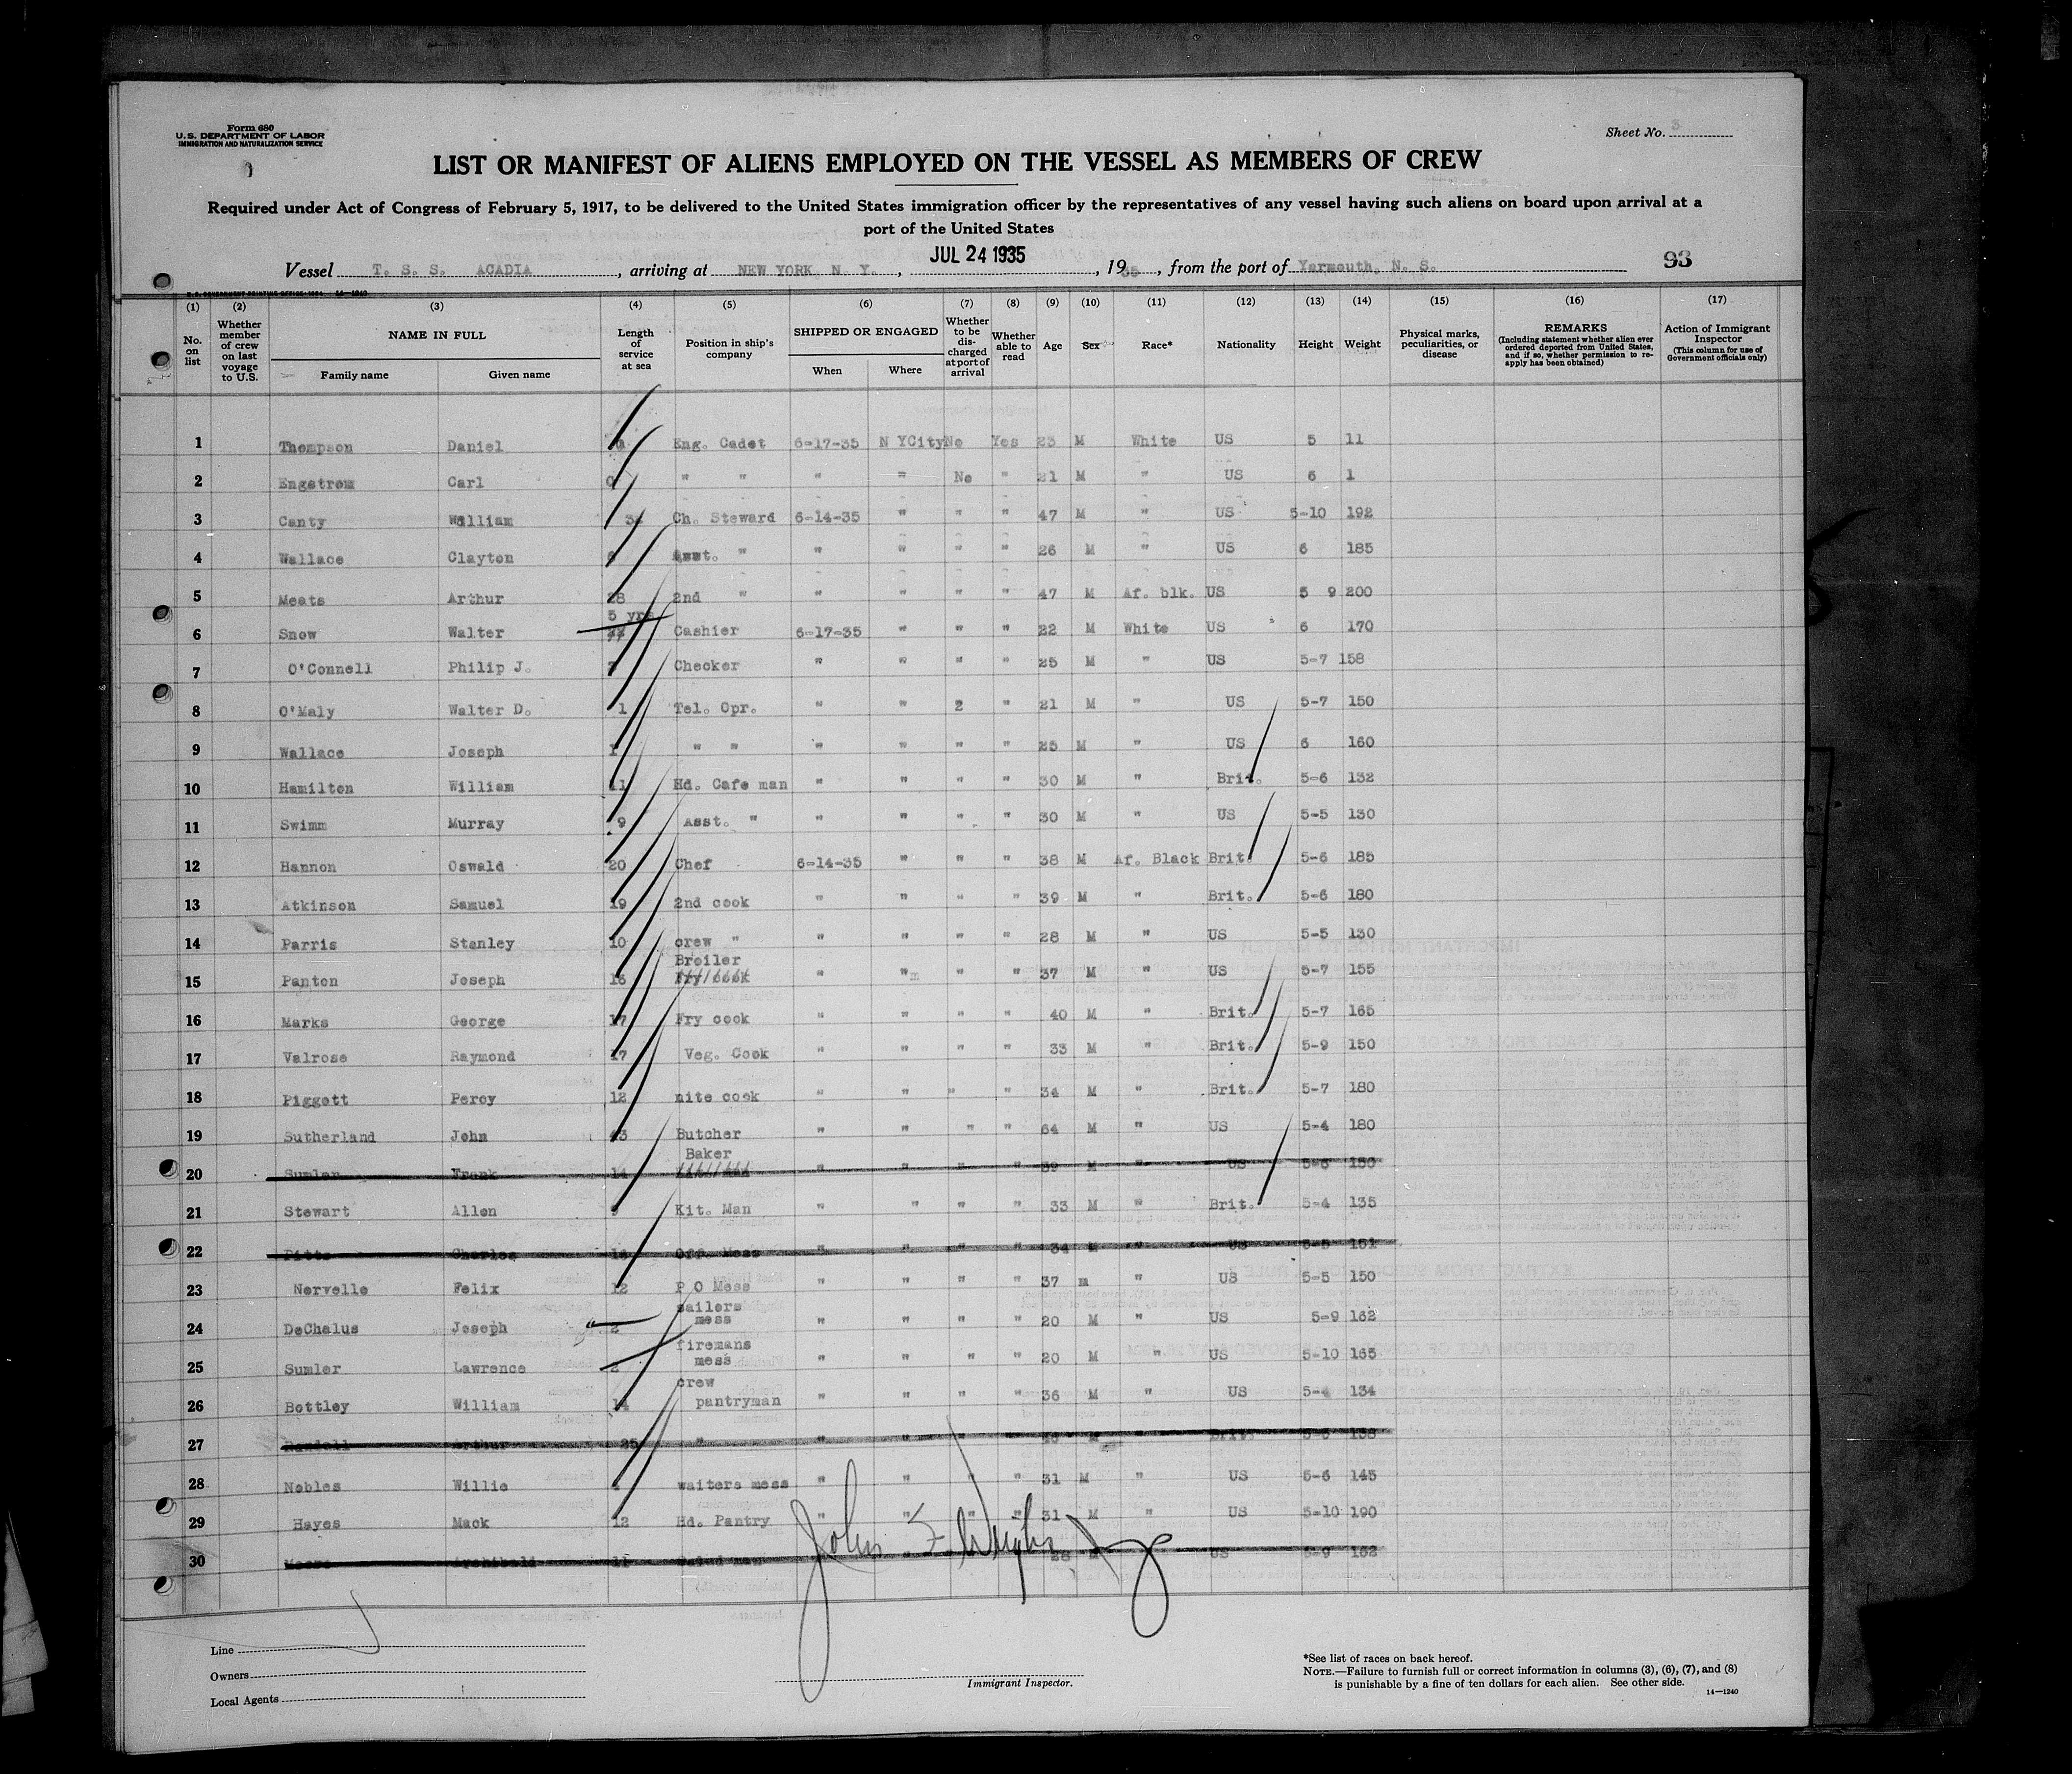 Form 680
U. S. DEPARTMENT OF LABOR
IMMIGRATION AND NATURALIZATION SERVICE
Sheet No. 3
LIST OR MANIFEST OF ALIENS EMPLOYED ON THE VESSEL AS MEMBERS OF CREW
Required under Act of Congress of February 5, 1917, to be delivered to the United States immigration officer by the representatives of any vessel having such aliens on board upon arrival at a
port of the United States
JUL 24 1935
Vessel T. S. S. ACADIA, arriving at NEW YORK N. Y., , 1935, from the port of Yarmouth, N. S. 93
(1) (2) (3) (4) (5) (6) (7) (8) (9) (10) (11) (12) (13) (14) (15) (16) (17)
No. on list Whether member of crew on last voyage to U.S. NAME IN FULL Family name Given name Length of service at sea Position in ship's company SHIPPED OR ENGAGED When Where Whether to be discharged at port of arrival Whether able to read Age Sex Race* Nationality Height Weight Physical marks, peculiarities, or disease REMARKS (Including statement whether alien ever ordered deported from United States, and if so, whether permission to reapply has been obtained) Action of Immigrant Inspector (This column for use of Government officials only)
1 Thompson Daniel Eng. Cadet 6-17-35 N YCity No Yes 23 M White US 5 11
2 Engstrom Carl 0 " " " " No " 21 M " US 6 1
3 Canty William Ch. Steward 6-14-35 " " " 47 M " US 5-10 192
4 Wallace Clayton Asst. " " " " " 26 M " US 6 185
5 Meats Arthur 28 2nd " " " " " 47 M Af. blk. US 5 9 200
5 yrs
6 Snow Walter Cashier 6-17-35 " " " 22 M White US 6 170
7 O'Connell Philip J. Checker " " " " 25 M " US 5-7 158
8 O'Maly Walter D. 1 Tel. Opr. " " 2 " 21 M " US 5-7 150
9 Wallace Joseph 1 " " " " " " 25 M " US 6 160
10 Hamilton William 11 Hd. Cafe man " " " " 30 M " Brit. 5-6 132
11 Swimm Murray 9 Asst. " " " " " 30 M " US 5-5 130
12 Hannon Oswald 20 Chef 6-14-35 " " " 38 M Af. Black Brit. 5-6 185
13 Atkinson Samuel 19 2nd cook " " " " 39 M " Brit. 5-6 180
14 Parris Stanley 10 crew " " " " " 28 M " US 5-5 130
Broiler
15 Panton Joseph 16 Fry cook " " " " 37 M " US 5-7 155
16 Marks George 17 Fry cook " " " " 40 M " Brit. 5-7 165
17 Valrose Raymond 17 Veg. Cook " " " " 33 M " Brit. 5-9 150
18 Piggott Percy 12 nite cook " " " " 34 M " Brit. 5-7 180
19 Sutherland John 43 Butcher " " " " 64 M " US 5-4 180
Baker
20 Sumler Frank 14 " " " " 39 M " US 150
21 Stewart Allen Kit. Man " " " " 33 M " Brit. 5-4 135
22 Pitts Charles Off. Mess " " " " 34 M " US 151
23 Nervelle Felix 12 P O Mess " " " " 37 m " US 5-5 150
sailors
24 DeChalus Joseph 2 mess " " " " 20 M " US 5-9 162
firemans
25 Sumler Lawrence 2 mess " " " " 20 M " US 5-10 165
crew
26 Bottley William 14 pantryman " " " " 36 M " US 5-4 134
27 Arthur 25 " " " " " M " Brit. 138
28 Nobles Willie waiters mess " " " " 31 M " US 5-6 145
29 Hayes Mack 12 Hd. Pantry " " " " 31 M " US 5-10 190
30 Moore Archibald 11 28 M US 5-9 162
Line
Owners
Local Agents
Immigrant Inspector.
*See list of races on back hereof.
NOTE.—Failure to furnish full or correct information in columns (3), (6), (7), and (8)
is punishable by a fine of ten dollars for each alien. See other side.
14—1240